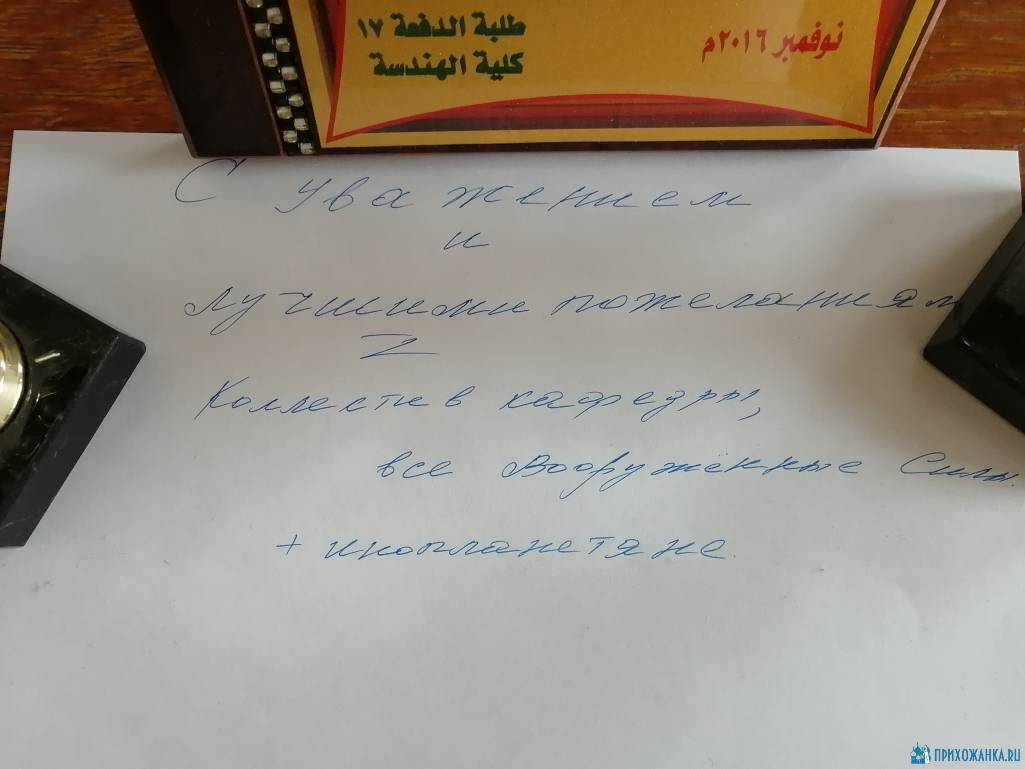 طلبة الدفعة ١٧
كلية الهندسة
نوفمبر ٢٠١٦م
С уважением
и
лучшими пожеланиям
Z
Коллектив кафедры,
все Вооружённые Силы.
+ инопланетяне.
ПРИХОЖАНКА.RU